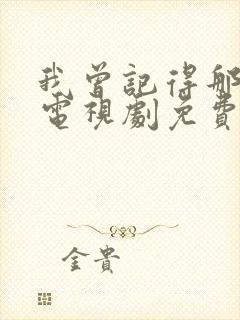 我曾記得那
電視劇免費
金貴